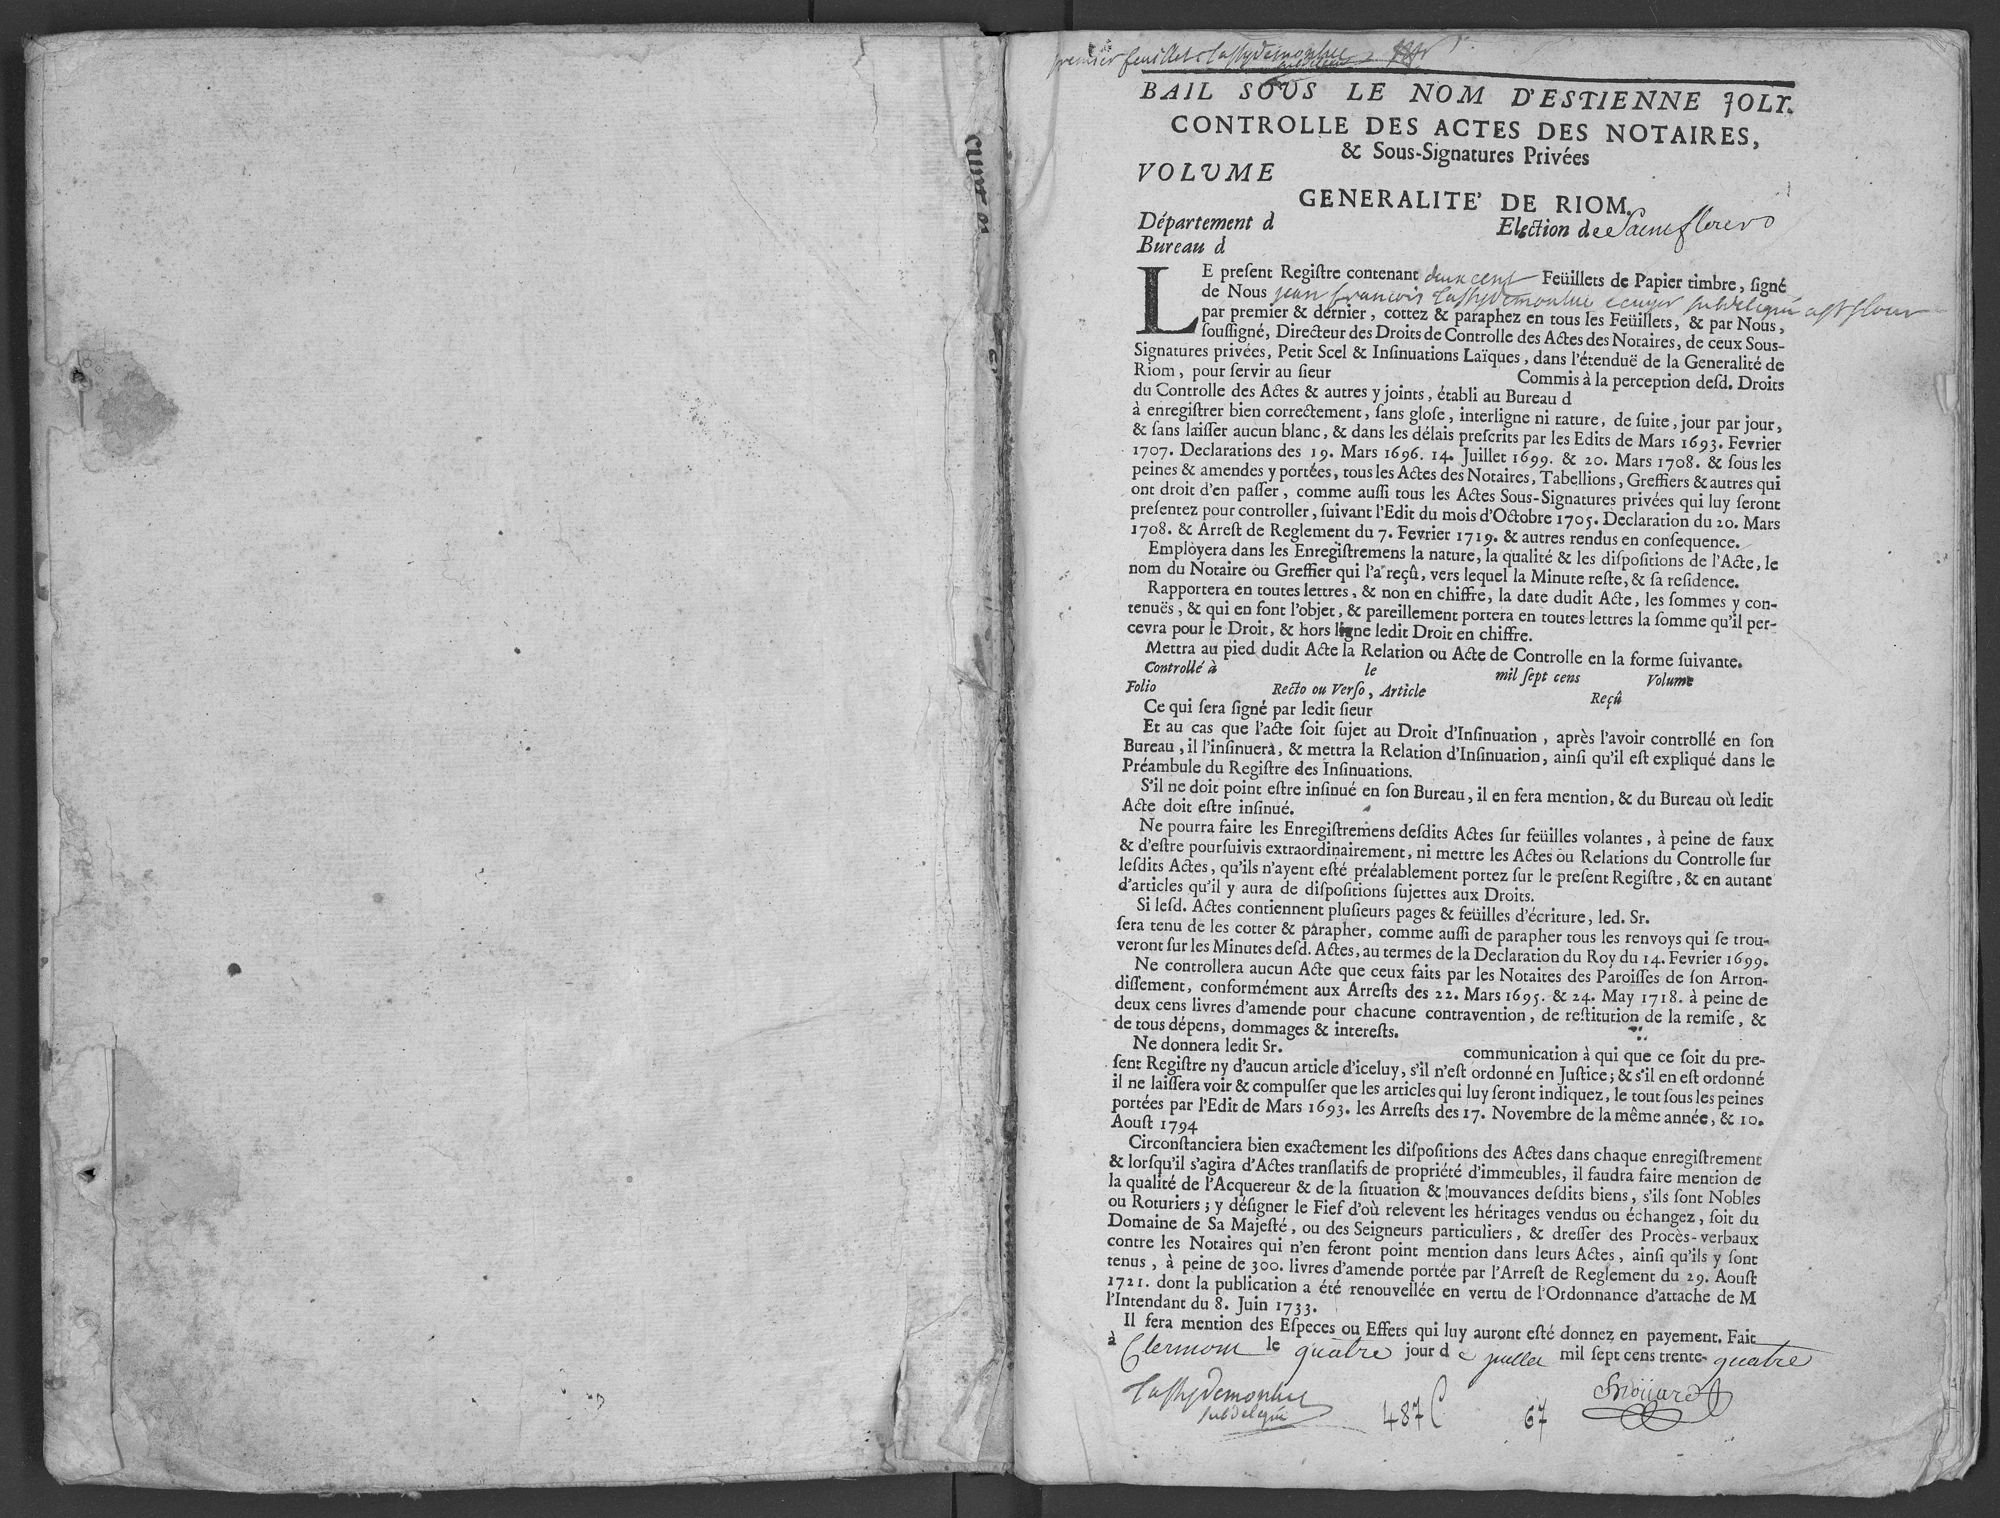 premier feuillet
BAIL SOUS LE NOM D'ESTIENNE JOLY.
CONTROLLE DES ACTES DES NOTAIRES,
& Sous-Signatures Privées
VOLUME
GENERALITE' DE RIOM.
Département d Election de
Bureau d
LE preſent Regiſtre contenant deux cent Feüillets de Papier timbre, ſigné
de Nous jean francois ecuyer subdelegué
par premier & dernier, cottez & paraphez en tous les Feüillets, & par Nous,
ſouſſigné, Directeur des Droits de Controlle des Actes des Notaires, de ceux Sous-
Signatures privées, Petit Scel & Inſinuations Laïques, dans l'étenduë de la Generalité de
Riom, pour ſervir au ſieur Commis à la perception deſd. Droits
du Controlle des Actes & autres y joints, établi au Bureau d
à enregiſtrer bien correctement, ſans gloſe, interligne ni rature, de ſuite, jour par jour,
& ſans laiſſer aucun blanc, & dans les délais preſcrits par les Edits de Mars 1693. Fevrier
1707. Declarations des 19. Mars 1696. 14. Juillet 1699. & 20. Mars 1708. & ſous les
peines & amendes y portées, tous les Actes des Notaires, Tabellions, Greffiers & autres qui
ont droit d'en paſſer, comme auſſi tous les Actes Sous-Signatures privées qui luy ſeront
preſentez pour controller, ſuivant l'Edit du mois d'Octobre 1705. Declaration du 20. Mars
1708. & Arreſt de Reglement du 7. Fevrier 1719. & autres rendus en conſequence.
Employera dans les Enregiſtremens la nature, la qualité & les diſpoſitions de l'Acte, le
nom du Notaire ou Greffier qui l'a reçû, vers lequel la Minute reſte, & ſa reſidence.
Rapportera en toutes lettres, & non en chiffre, la date dudit Acte, les ſommes y con-
tenuës, & qui en font l'objet, & pareillement portera en toutes lettres la ſomme qu'il per-
cevra pour le Droit, & hors ligne ledit Droit en chiffre.
Mettra au pied dudit Acte la Relation ou Acte de Controlle en la forme ſuivante.
Controllé à le mil ſept cens Volume
Folio Recto ou Verſo, Article Reçû
Ce qui ſera ſigné par ledit ſieur
Et au cas que l'acte ſoit ſujet au Droit d'Inſinuation, après l'avoir controllé en ſon
Bureau, il l'inſinuera, & mettra la Relation d'Inſinuation, ainſi qu'il eſt expliqué dans le
Préambule du Regiſtre des Inſinuations.
S'il ne doit point eſtre inſinué en ſon Bureau, il en fera mention, & du Bureau où ledit
Acte doit eſtre inſinué.
Ne pourra faire les Enregiſtremens deſdits Actes ſur feüilles volantes, à peine de faux
& d'eſtre pourſuivis extraordinairement, ni mettre les Actes ou Relations du Controlle ſur
leſdits Actes, qu'ils n'ayent eſté préalablement portez ſur le preſent Regiſtre, & en autant
d'articles qu'il y aura de diſpoſitions ſujettes aux Droits.
Si leſd. Actes contiennent pluſieurs pages & feüilles d'écriture, led. Sr.
ſera tenu de les cotter & parapher, comme auſſi de parapher tous les renvoys qui ſe trou-
veront ſur les Minutes deſd. Actes, au termes de la Declaration du Roy du 14. Fevrier 1699.
Ne controllera aucun Acte que ceux faits par les Notaires des Paroiſſes de ſon Arron-
diſſement, conformément aux Arreſts des 22. Mars 1695. & 24. May 1718. à peine de
deux cens livres d'amende pour chacune contravention, de reſtitution de la remiſe, &
de tous dépens, dommages & intereſts.
Ne donnera ledit Sr. communication à qui que ce ſoit du pre-
ſent Regiſtre ny d'aucun article d'iceluy, s'il n'eſt ordonné en Juſtice; & s'il en eſt ordonné
il ne laiſſera voir & compulſer que les articles qui luy ſeront indiquez, le tout ſous les peines
portées par l'Edit de Mars 1693. les Arreſts des 17. Novembre de la même année, & 10.
Aouſt 1794
Circonſtanciera bien exactement les diſpoſitions des Actes dans chaque enregiſtrement
& lorſqu'il s'agira d'Actes tranſlatifs de propriété d'immeubles, il faudra faire mention de
la qualité de l'Acquereur & de la ſituation & mouvances deſdits biens, s'ils ſont Nobles
ou Roturiers; y déſigner le Fief d'où relevent les héritages vendus ou échangez, ſoit du
Domaine de Sa Majeſté, ou des Seigneurs particuliers, & dreſſer des Procès-verbaux
contre les Notaires qui n'en feront point mention dans leurs Actes, ainſi qu'ils y ſont
tenus, à peine de 300. livres d'amende portée par l'Arreſt de Reglement du 29. Aouſt
1721. dont la publication a été renouvellée en vertu de l'Ordonnance d'attache de M
l'Intendant du 8. Juin 1733.
Il ſera mention des Eſpeces ou Effets qui luy auront eſté donnez en payement. Fait
à Clermont le quatre jour de juillet mil ſept cens trente-quatre
subdelegué
487 C 67